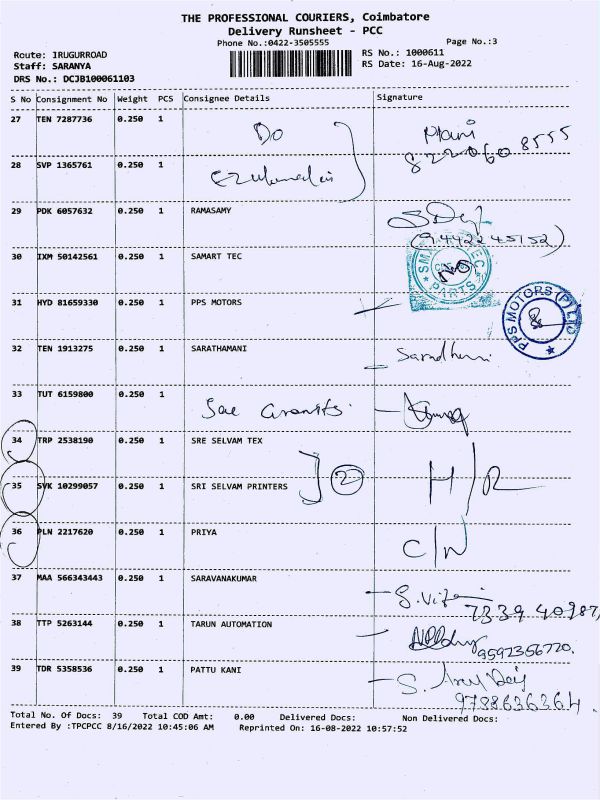 THE PROFESSIONAL COURIERS, Coimbatore
Delivery Runsheet - PCC
Phone No.:0422-3505555 Page No.:3
Route: IRUGURROAD RS No.: 1000611
Staff: SARANYA RS Date: 16-Aug-2022
DRS No.: DCJB100061103
S No Consignment No Weight PCS Consignee Details Signature
27 TEN 7287736 0.250 1 Do Mani
8220608555
28 SVP 1365761 0.250 1
29 PDK 6057632 0.250 1 RAMASAMY
(9442245152)
30 IXM 50142561 0.250 1 SAMART TEC
PARTS
31 HYD 81659330 0.250 1 PPS MOTORS
PPS MOTORS (P) LTD
32 TEN 1913275 0.250 1 SARATHAMANI
33 TUT 6159800 0.250 1
34 TRP 2538190 0.250 1 SRE SELVAM TEX
35 SVK 10299057 0.250 1 SRI SELVAM PRINTERS 2 H/R
36 PLN 2217620 0.250 1 PRIYA C/N
37 MAA 566343443 0.250 1 SARAVANAKUMAR
38 TTP 5263144 0.250 1 TARUN AUTOMATION
9592356720.
39 TDR 5358536 0.250 1 PATTU KANI
9788636364.
Total No. Of Docs: 39 Total COD Amt: 0.00 Delivered Docs: Non Delivered Docs:
Entered By :TPCPCC 8/16/2022 10:45:06 AM Reprinted On: 16-08-2022 10:57:52